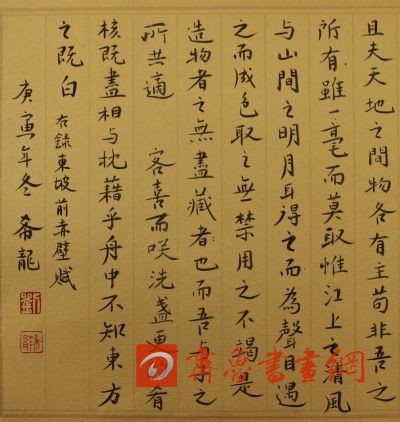 且夫天地之間物各有主苟非吾之
所有雖一毫而莫取惟江上之清風
与山間之明月耳得之而為聲目遇
之而成色取之無禁用之不竭是
造物者之無盡藏者也而吾与子之
所共適 客喜而咲洗盞更酌肴
核既盡相与枕藉乎舟中不知東方
之既白 右錄東坡前赤壁賦
庚寅年冬 希龍
劉
齊魯書畫網